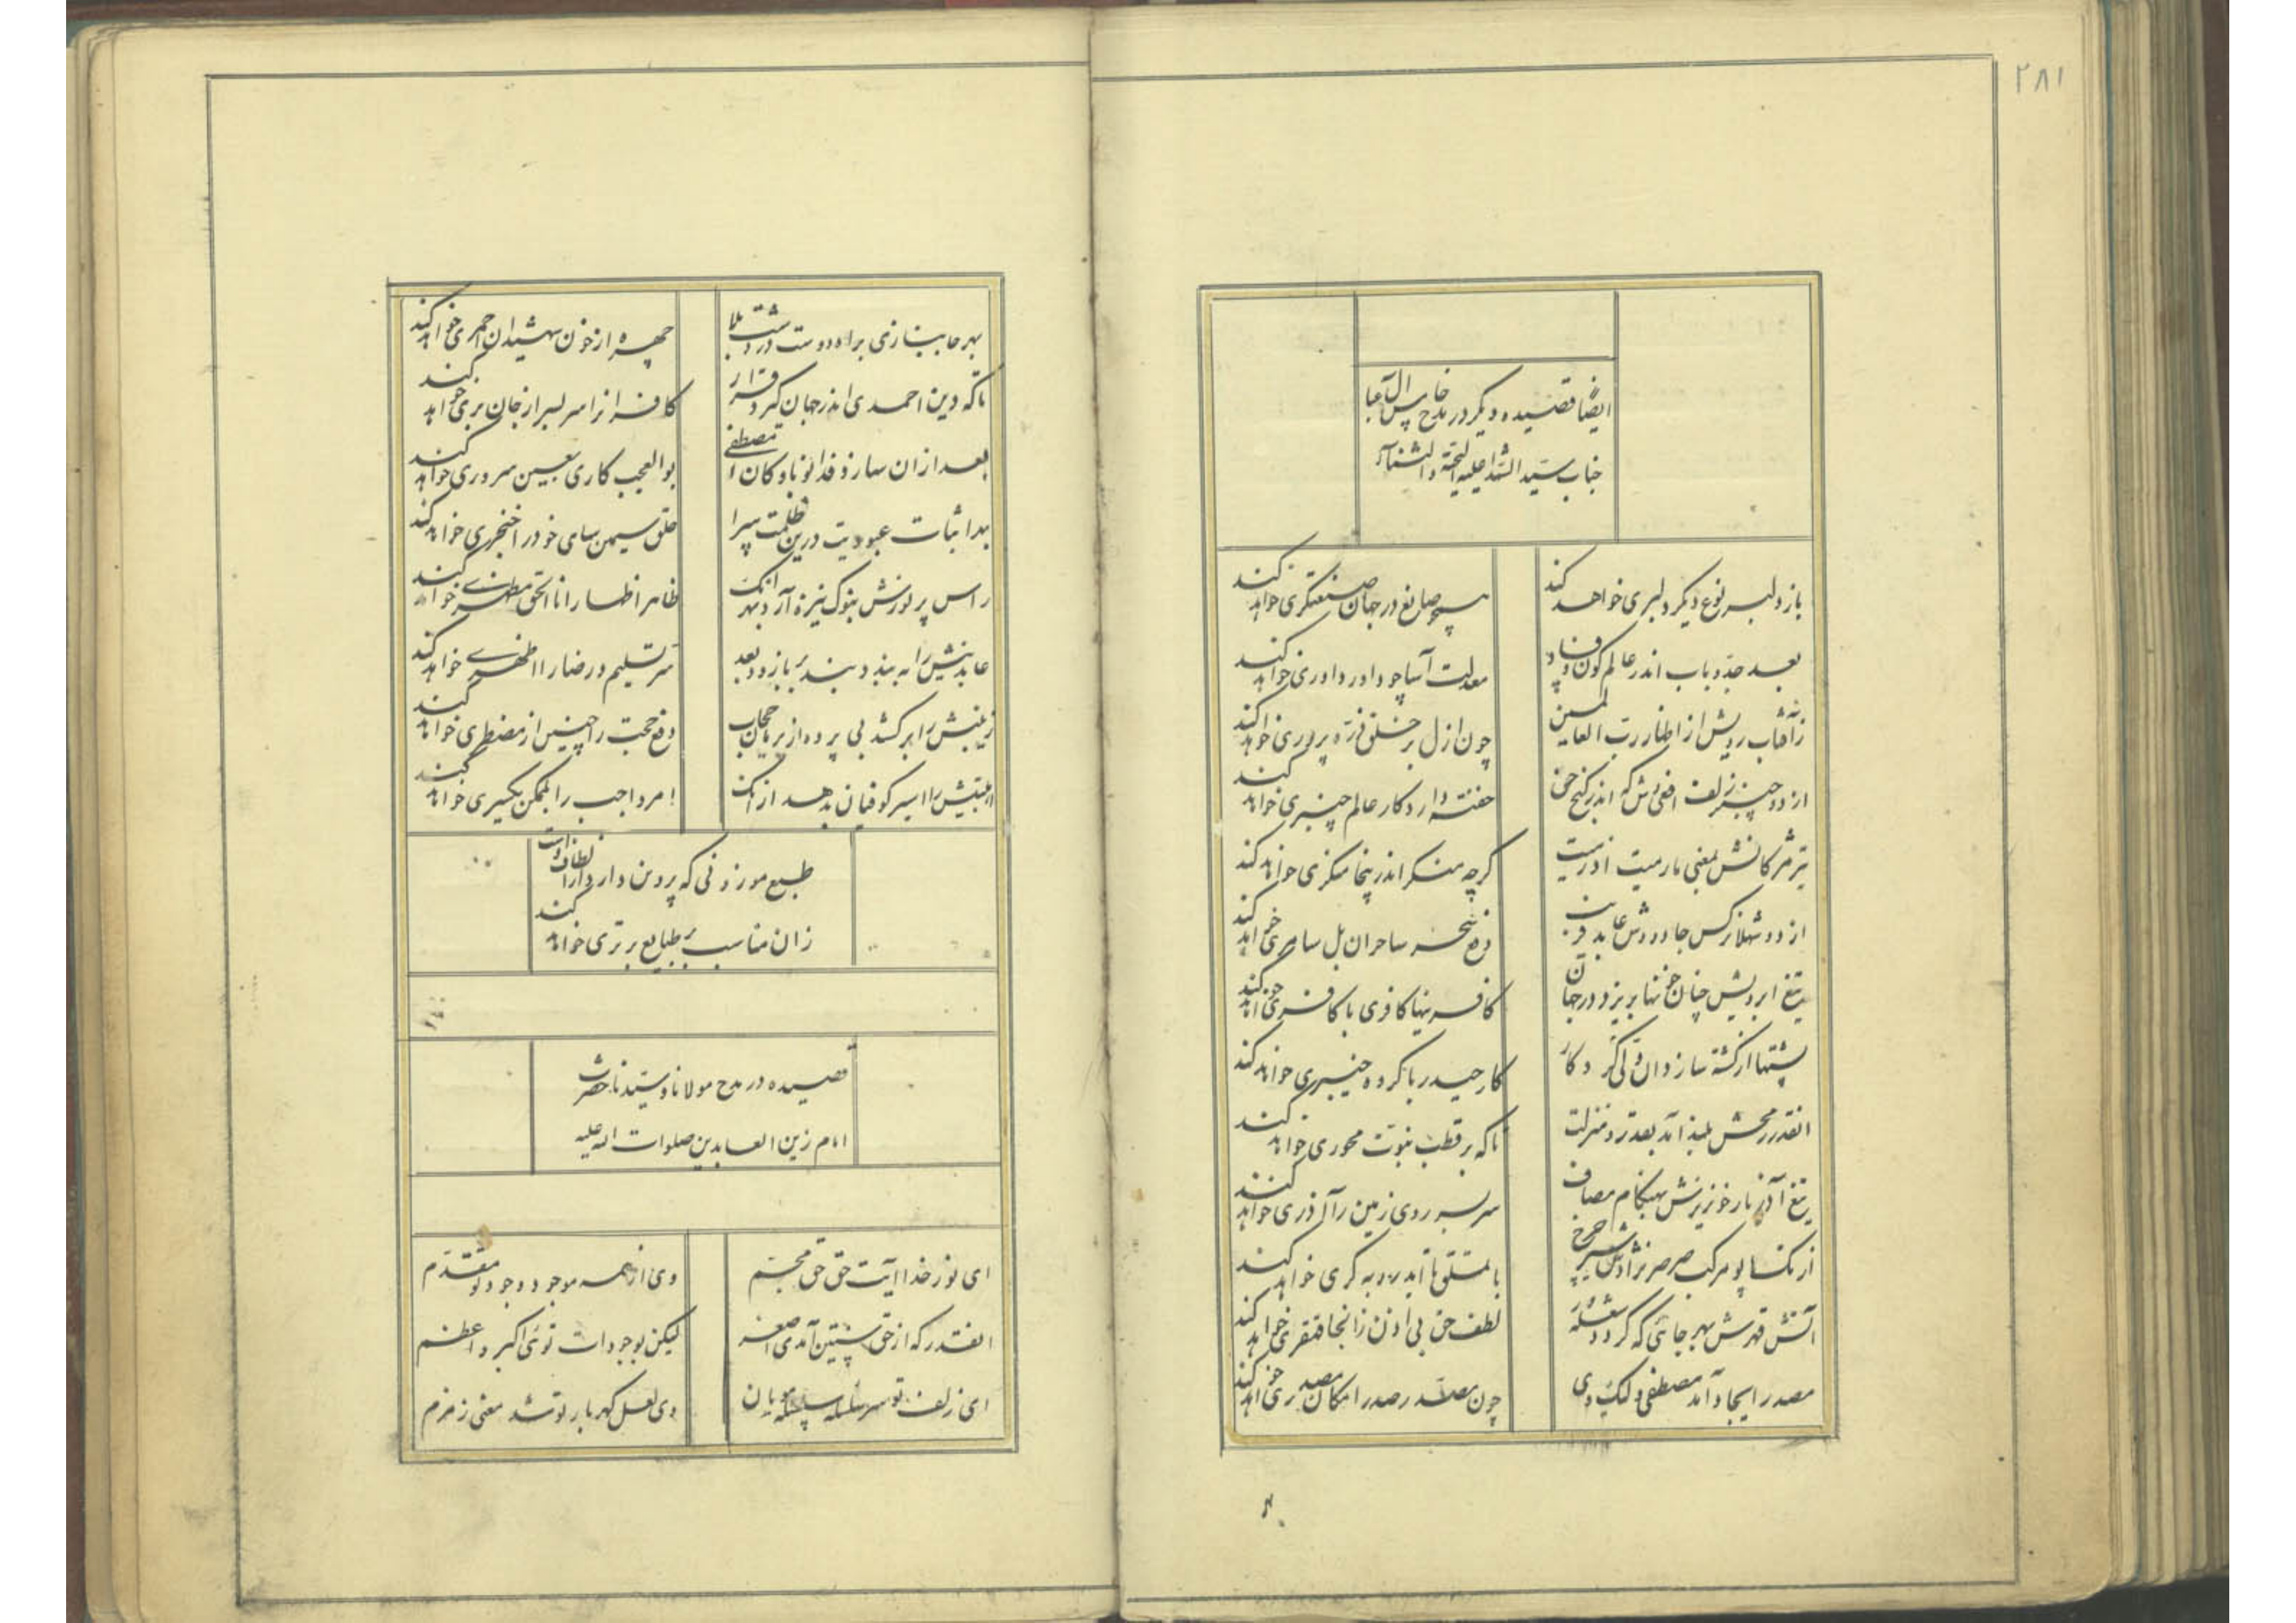 ۲۸۱
ایضا قصیده دیگر در مدح خامس آل عبا
جناب سید الشهدا علیه التحیة والثناء
باز دلبر نوع دیگر دلبری خواهد کند
همچو صانع در جهان صنعتگری خواهد کند
بعد جد و باب اندر عالم کون و فساد
معدلت آسا چو داور داوری خواهد کند
زآفتاب رویش از اظهار رب العالمین
چون ازل بر خلق ذره پروری خواهد کند
از دو چنبر زلف افعی وش که اندر گنج حق
خفته وار در کار عالم چنبری خواهد کند
تیر مژگانش بمعنی ما رمیت اذ رمیت
گرچه منکر اندر پنجا منکری خواهد کند
از دو شهلا نرگس جادووش عابد فریب
دفع سخر ساحران بل سامری خواهد کند
تیغ ابرویش چنان خونها بریزد در جهان
کافر بنها کافری با کافری خواهد کند
پشتها از کشته سازد آن ولی کردگار
کار حیدر با گروه خیبری خواهد کند
آنقدر رمحش بلند آمد بقدر و منزلت
تا که بر قطب نبوت محوری خواهد کند
تیغ آذر بار خونریزش بهنگام مصاف
سر بسر روی زمین را آذری خواهد کند
از تکاپو مرکب صرصر نژادش شیر چرخ
با تملق تا ابد روبه گری خواهد کند
آتش قهرش بهر جائی که گردد شعله ور
لطف حق بی اذن زانجا قنقری خواهد کند
مصدر ایجاد آمد مصطفی و لیک وی
چون مصدر صدر امکان مصدری خواهد کند
بهر جانبازی براه دوست در دشت بلا
چهره از خون شهیدان احمری خواهد کند
تا که دین احمدی اندر جهان گیرد قرار
کافران را سر بسر از جان بری خواهد کند
بعد ازان سازد فدا نوباوکان مصطفی
بوالعجب کاری بعین سروری خواهد کند
بهر اثبات عبودیت درین ظلمت سرا
حلق سیمین سای خود را خنجری خواهد کند
راس پر نورش بنوک نیزه آرد بهر آنک
ظاهر اظهار انا الحق مظهری خواهد کند
عابدینش را به بند در بند بر بازو و بعد
سر تسلیم و رضا را اظهری خواهد کند
زینبش را بر کشد بی پرده از زیر حجاب
دفع حجت را چنین از مضطری خواهد کند
اهلبیتش را اسیر کوفیان بدهد از آنک
امر واجب را بممکن یکسری خواهد کند
طبع موزونی که پروین دارد از الطاف دوست
زان مناسب بر طبایع برتری خواهد کند
قصیده در مدح مولانا و سیدنا حضرت
امام زین العابدین صلوات اله علیه
ای نور خدا آیت حق حق مجسم
وی از همه موجود وجود تو مقدم
آنقدر که از حق پستین آمدی اصغر
لیکن بوجودات توئی اکبر و اعظم
ای زلف تو سر سلسله سلسله مویان
وی لعل گهربار تو شد معنی زمزم